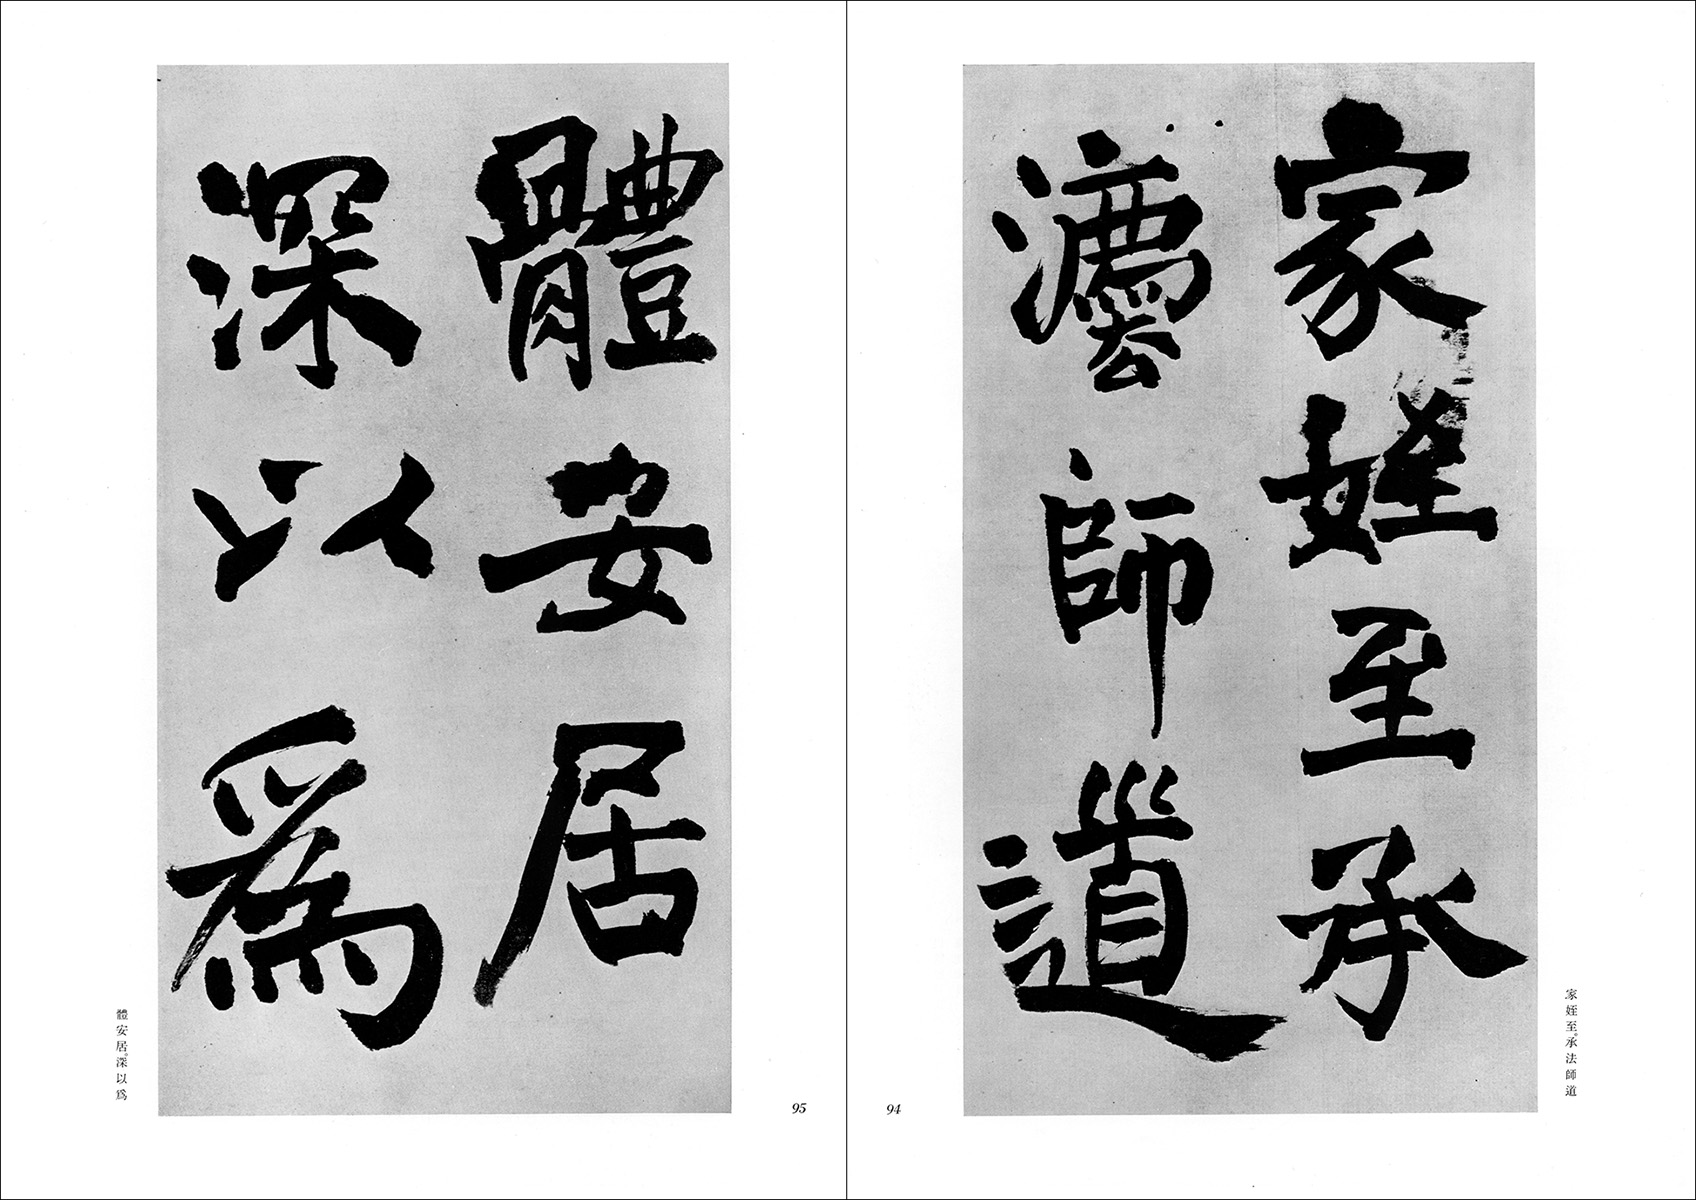 家姪至承
灋師道
家姪至。承法師道
94
體安居
深以爲
體安居。深以爲
95